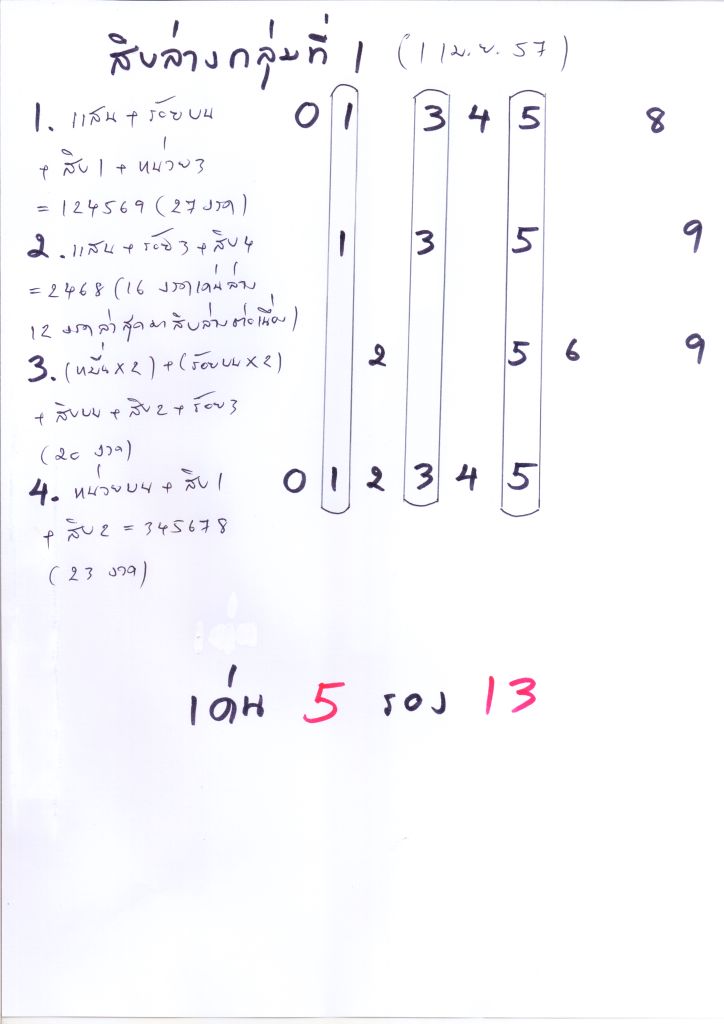 สิบล่างกลุ่มที่ 1 (1 เม.ย. 57)
1. แสน + ร้อยบน 0 1 3 4 5 8
+ สิบ 1 + หน่วย 3
= 124569 (27 งวด)
2. แสน + ร้อย 3 + สิบ 4 1 3 5 9
= 2468 (16 งวดเด่นล่าง
12 งวดล่าสุดมาสิบล่างต่อเนื่อง)
3. (หมื่น x 2) + (ร้อยบน x 2) 2 5 6 9
+ สิบบน + สิบ 2 + ร้อย 3
(20 งวด)
4. หน่วยบน + สิบ 1 0 1 2 3 4 5
+ สิบ 2 = 345678
(23 งวด)
เด่น 5 รอง 13